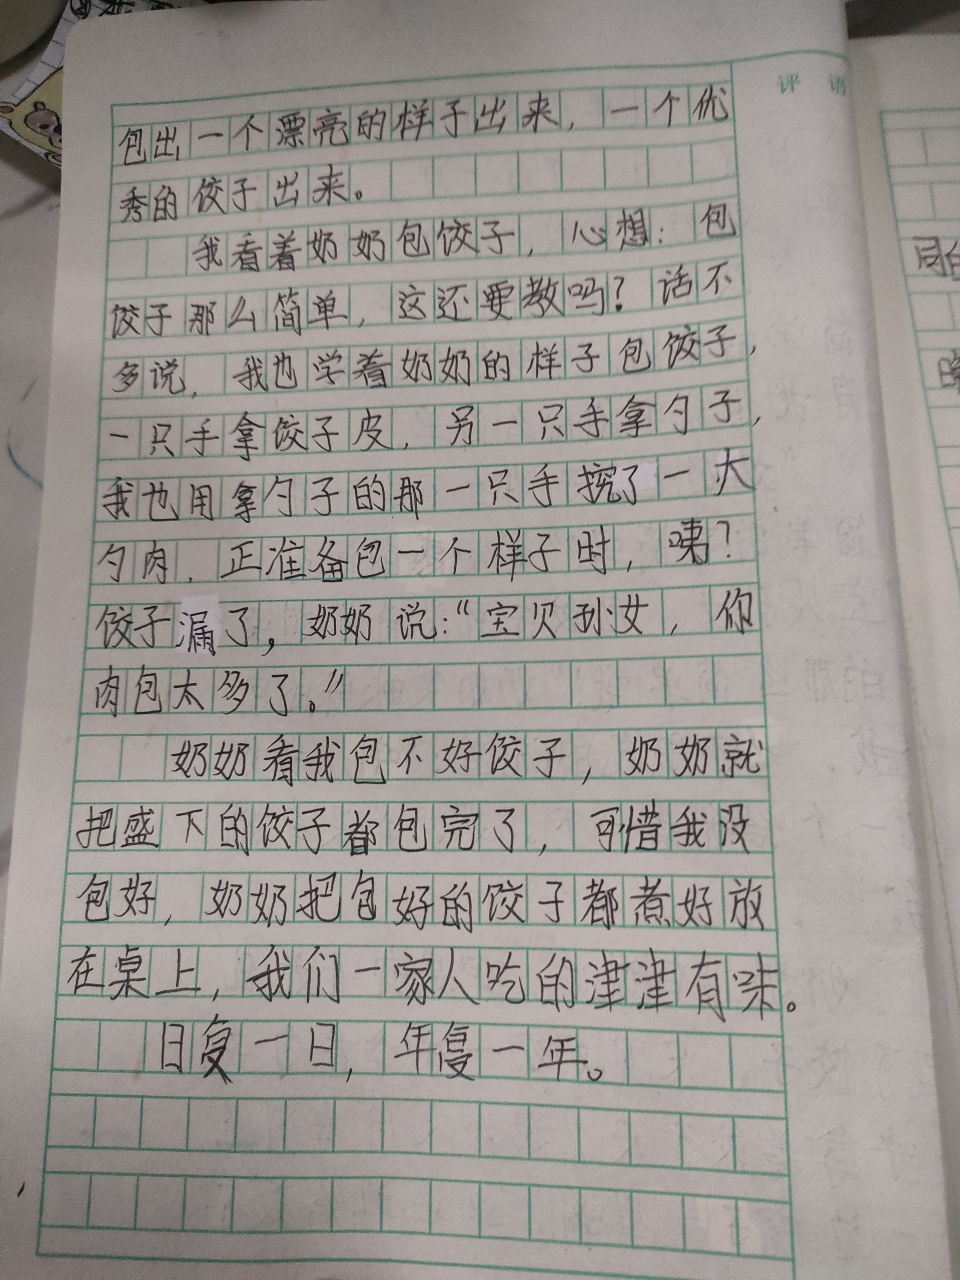 评 语
包出一个漂亮的样子出来，一个优
秀的饺子出来。
我看着奶奶包饺子，心想：包
饺子那么简单，这还要教吗？话不
多说，我也学着奶奶的样子包饺子，
一只手拿饺子皮，另一只手拿勺子，
我也用拿勺子的那一只手挖了一大
勺肉，正准备包一个样子时，咦？
饺子漏了，奶奶说：“宝贝孙女，你
肉包太多了。”
奶奶看我包不好饺子，奶奶就
把盛下的饺子都包完了，可惜我没
包好，奶奶把包好的饺子都煮好放
在桌上，我们一家人吃的津津有味。
日复一日，年复一年。